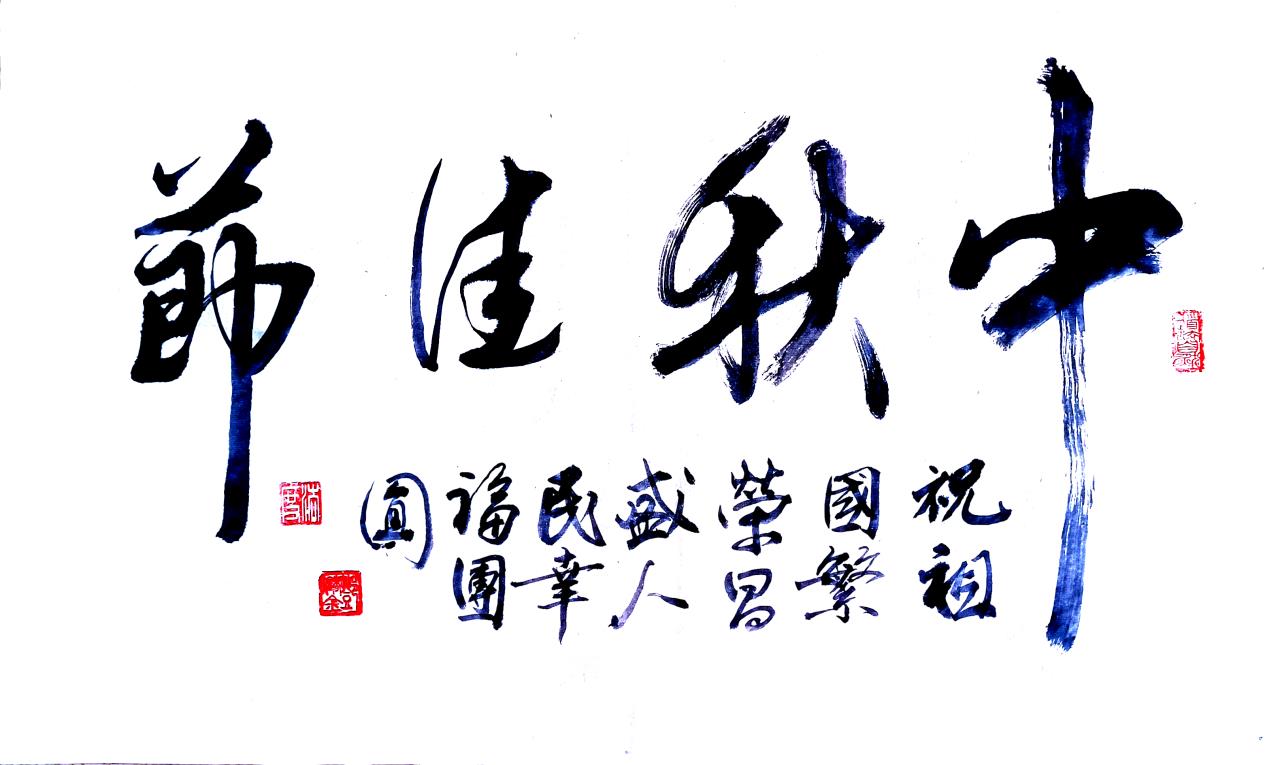 中秋佳節
祝祖
國繁
榮昌
盛人
民幸
福團
圓